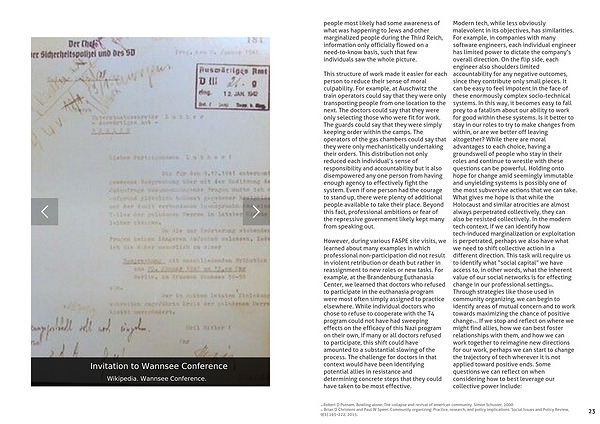 Der Chef
der Sicherheitspolizei und des SD
181
Auswärtiges Amt
D III
eing. 12 JAN 1942
Unterstaatssekretär Luther
Auswärtiges Amt
Lieber Parteigenosse Luther!
Heil Hitler!
Invitation to Wannsee Conference
Wikipedia. Wannsee Conference.
people most likely had some awareness of
what was happening to Jews and other
marginalized people during the Third Reich,
information only officially flowed on a
need-to-know basis, such that few
individuals saw the whole picture.
This structure of work made it easier for each
person to reduce their sense of moral
culpability. For example, at Auschwitz the
train operators could say that they were only
transporting people from one location to the
next. The doctors could say that they were
only selecting those who were fit for work.
The guards could say that they were simply
keeping order within the camps. The
operators of the gas chambers could say that
they were only mechanistically undertaking
their orders. This distribution not only
reduced each individual's sense of
responsibility and accountability but it also
disempowered any one person from having
enough agency to effectively fight the
system. Even if one person had the courage
to stand up, there were plenty of additional
people available to take their place. Beyond
this fact, professional ambitions or fear of
the repressive government likely kept many
from speaking out.
However, during various FASPE site visits, we
learned about many examples in which
professional non-participation did not result
in violent retribution or death but rather in
reassignment to new roles or new tasks. For
example, at the Brandenburg Euthanasia
Center, we learned that doctors who refused
to participate in the euthanasia program
were most often simply assigned to practice
elsewhere. While individual doctors who
chose to refuse to cooperate with the T4
program could not have had sweeping
effects on the efficacy of this Nazi program
on their own, if many or all doctors refused
to participate, this shift could have
amounted to a substantial slowing of the
process. The challenge for doctors in that
context would have been identifying
potential allies in resistance and
determining concrete steps that they could
have taken to be most effective.
Modern tech, while less obviously
malevolent in its objectives, has similarities.
For example, in companies with many
software engineers, each individual engineer
has limited power to dictate the company's
overall direction. On the flip side, each
engineer also shoulders limited
accountability for any negative outcomes,
since they contribute only small pieces. It
can be easy to feel impotent in the face of
these enormously complex socio-technical
systems. In this way, it becomes easy to fall
prey to a fatalism about our ability to work
for good within these systems. Is it better to
stay in our roles to try to make changes from
within, or are we better off leaving
altogether? While there are moral
advantages to each choice, having a
groundswell of people who stay in their
roles and continue to wrestle with these
questions can be powerful. Holding onto
hope for change amid seemingly immutable
and unyielding systems is possibly one of
the most subversive actions that we can take.
What gives me hope is that while the
Holocaust and similar atrocities are almost
always perpetrated collectively, they can
also be resisted collectively. In the modern
tech context, if we can identify how
tech-induced marginalization or exploitation
is perpetrated, perhaps we also have what
we need to shift collective action in a
different direction. This task will require us
to identify what "social capital" we have
access to, in other words, what the inherent
value of our social networks is for effecting
change in our professional settings.
Through strategies like those used in
community organizing, we can begin to
identify areas of mutual concern and to work
towards maximizing the chance of positive
change. If we stop and reflect on where we
might find allies, how we can best foster
relationships with them, and how we can
work together to reimagine new directions
for our work, perhaps we can start to change
the trajectory of tech wherever it is not
applied toward positive ends. Some
questions we can reflect on when
considering how to best leverage our
collective power include:
Robert D Putnam. Bowling alone: The collapse and revival of american community. Simon Schuster, 2000.
Brian D Christens and Paul W Speer. Community organizing: Practice, research, and policy implications. Social Issues and Policy Review,
9(1):193–222, 2015.
23